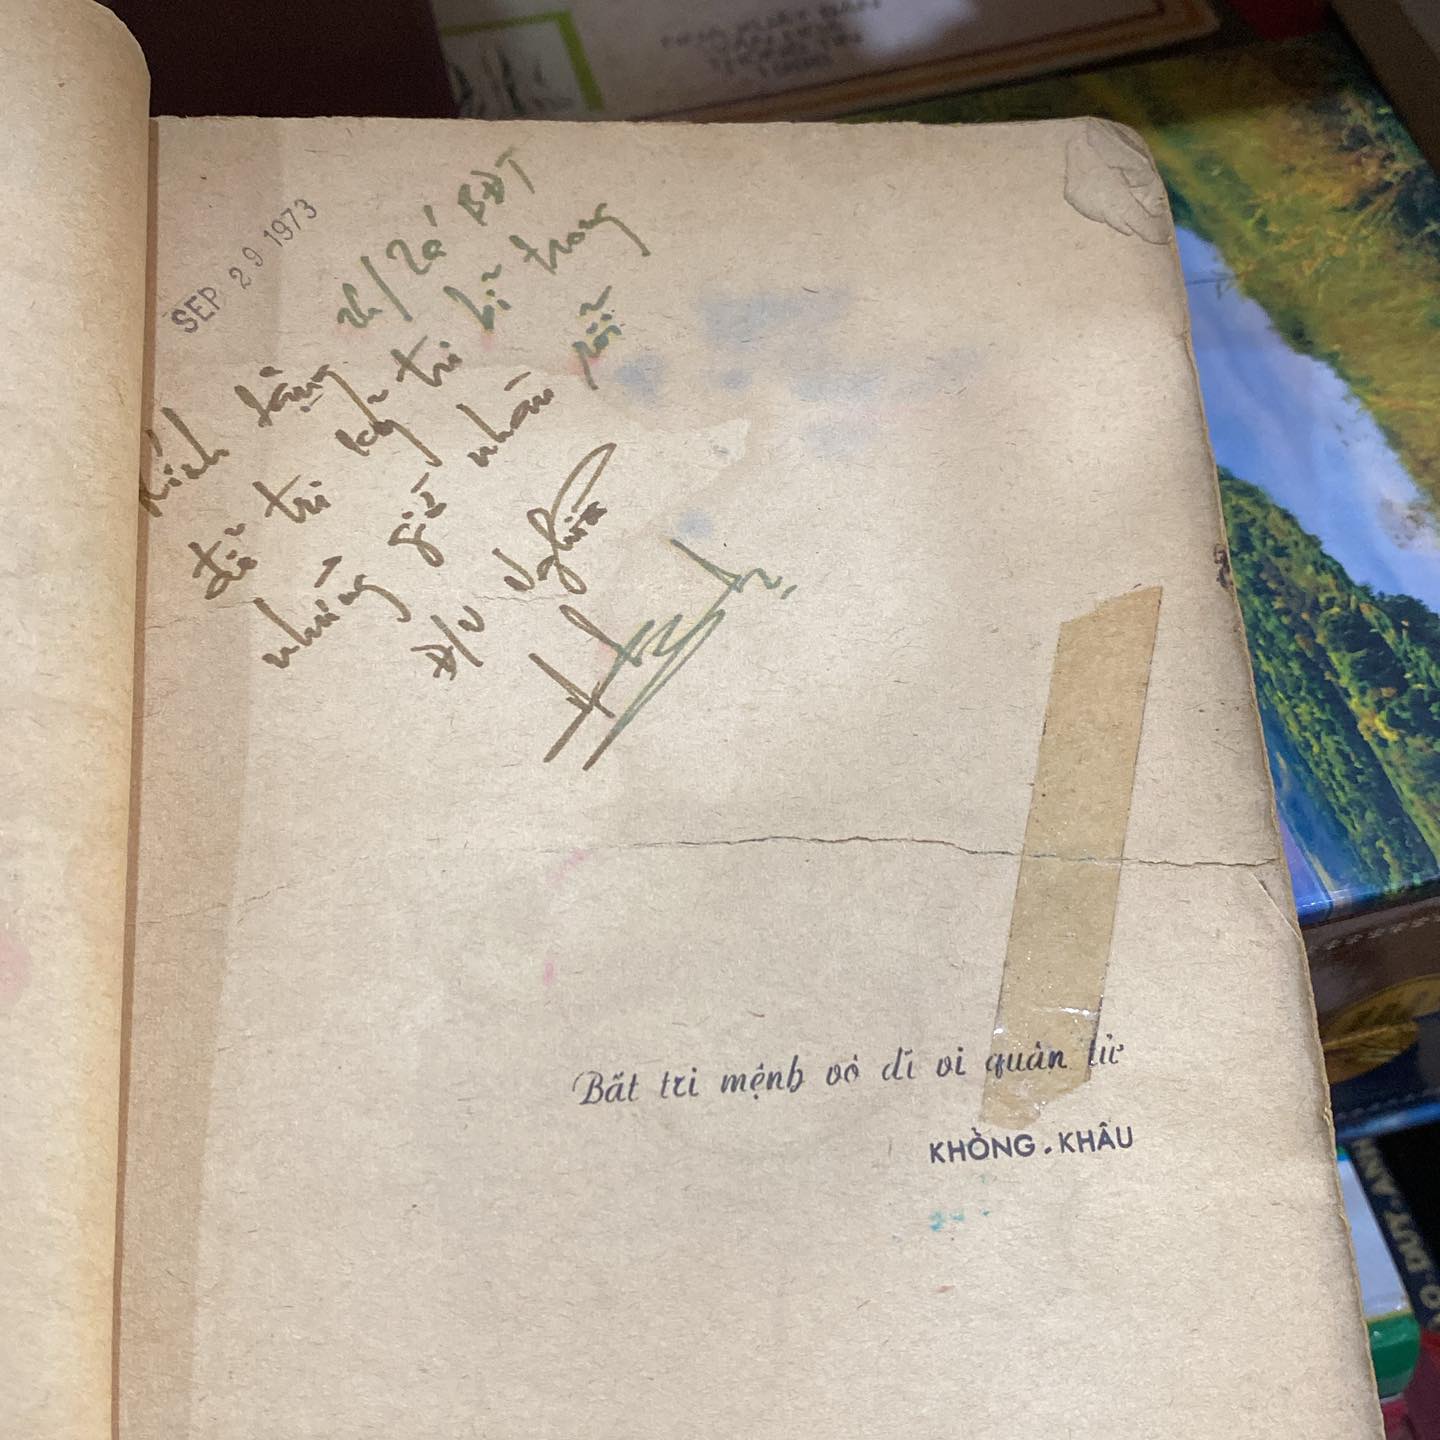 SEP 29 1973
Kính tặng th/tá BĐT
để tri kỷ tri bỉ trong
những giờ nhàn rỗi
Đ/u Nghĩa
Bất tri mệnh vô dĩ vi quân tử
KHỒNG.KHÂU
NHÀ XUẤT BẢN
DUY-ANH